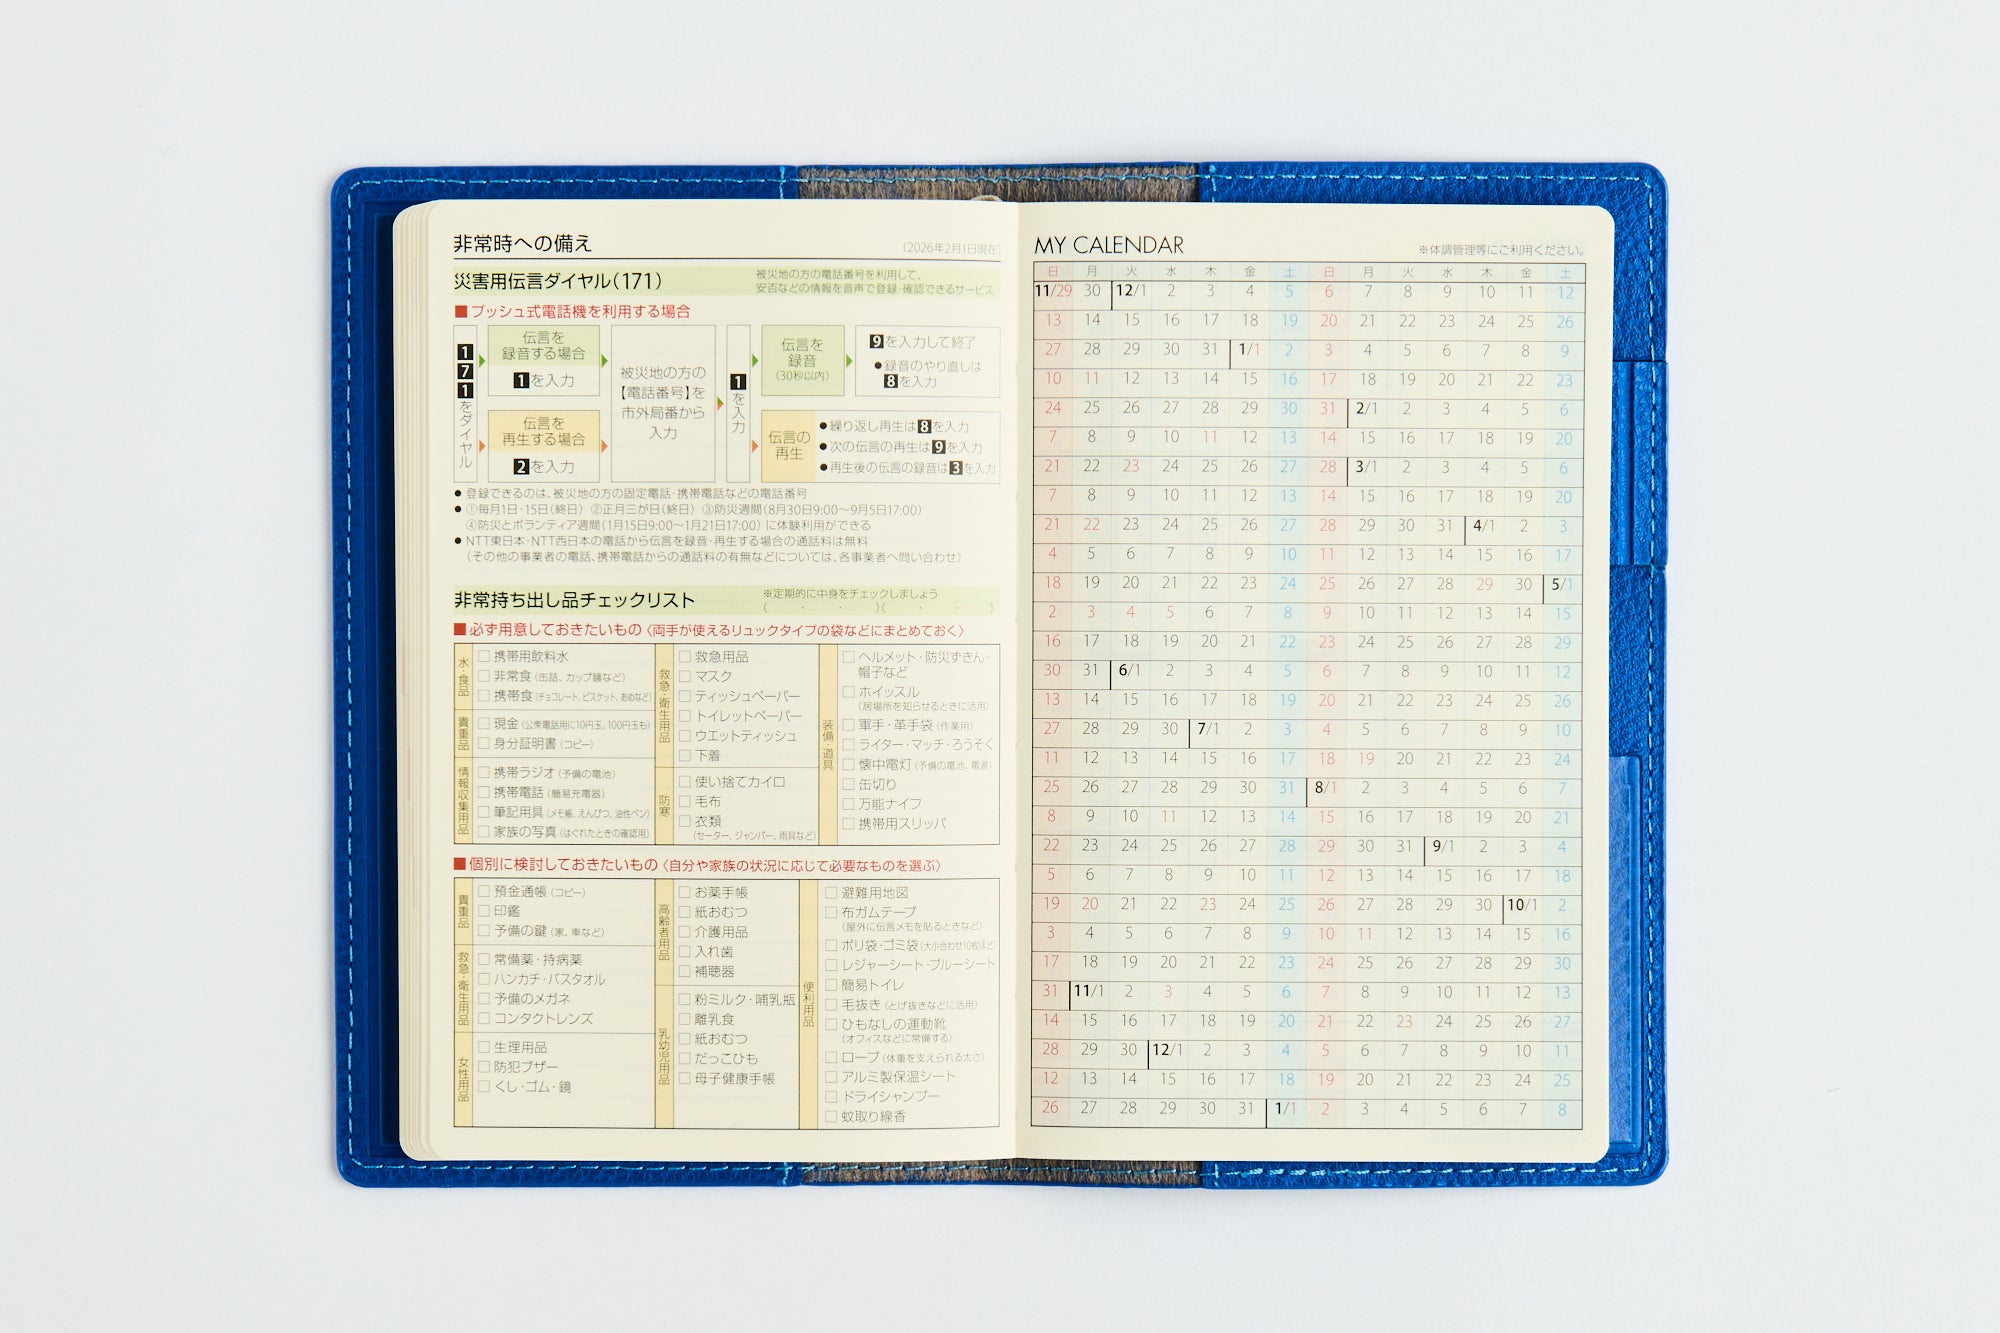 非常時への備え
(2026年2月1日現在)
災害用伝言ダイヤル(171)
被災地の方の電話番号を利用して、
安否などの情報を音声で登録・確認できるサービス
■プッシュ式電話機を利用する場合
171をダイヤル
伝言を
録音する場合
1を入力
伝言を
再生する場合
2を入力
被災地の方の
【電話番号】を
市外局番から
入力
1を入力
伝言を
録音
(30秒以内)
9を入力して終了
●録音のやり直しは
8を入力
伝言の
再生
●繰り返し再生は8を入力
●次の伝言の再生は9を入力
●再生後の伝言の録音は3を入力
●登録できるのは、被災地の方の固定電話・携帯電話などの電話番号
●①毎月1日・15日(終日) ②正月三が日(終日) ③防災週間(8月30日9:00～9月5日17:00)
④防災とボランティア週間(1月15日9:00～1月21日17:00) に体験利用ができる
●NTT東日本・NTT西日本の電話から伝言を録音・再生する場合の通話料は無料
(その他の事業者の電話、携帯電話からの通話料の有無などについては、各事業者へ問い合わせ)
非常持ち出し品チェックリスト
※定期的に中身をチェックしましょう
( ・ ・ )( ・ ・ )
■必ず用意しておきたいもの〈両手が使えるリュックタイプの袋などにまとめておく〉
水・食品
□携帯用飲料水
□非常食(缶詰、カップ麺など)
□携帯食(チョコレート、ビスケット、あめなど)
貴重品
□現金(公衆電話用に10円玉、100円玉も)
□身分証明書(コピー)
情報収集用品
□携帯ラジオ(予備の電池)
□携帯電話(簡易充電器)
□筆記用具(メモ帳、えんぴつ、油性ペン)
□家族の写真(はぐれたときの確認用)
救急・衛生用品
□救急用品
□マスク
□ティッシュペーパー
□トイレットペーパー
□ウエットティッシュ
□下着
防寒
□使い捨てカイロ
□毛布
□衣類
(セーター、ジャンパー、雨具など)
装備・道具
□ヘルメット・防災ずきん・
帽子など
□ホイッスル
(居場所を知らせるときに活用)
□軍手・革手袋(作業用)
□ライター・マッチ・ろうそく
□懐中電灯(予備の電池、電源)
□缶切り
□万能ナイフ
□携帯用スリッパ
■個別に検討しておきたいもの〈自分や家族の状況に応じて必要なものを選ぶ〉
貴重品
□預金通帳(コピー)
□印鑑
□予備の鍵(家、車など)
救急・衛生用品
□常備薬・持病薬
□ハンカチ・バスタオル
□予備のメガネ
□コンタクトレンズ
女性用品
□生理用品
□防犯ブザー
□くし・ゴム・鏡
高齢者用品
□お薬手帳
□紙おむつ
□介護用品
□入れ歯
□補聴器
乳幼児用品
□粉ミルク・哺乳瓶
□離乳食
□紙おむつ
□だっこひも
□母子健康手帳
便利用品
□避難用地図
□布ガムテープ
(屋外に伝言メモを貼るときなど)
□ポリ袋・ゴミ袋(大小合わせ10枚ほど)
□レジャーシート・ブルーシート
□簡易トイレ
□毛抜き(とげ抜きなどに活用)
□ひもなしの運動靴
(オフィスなどに常備する)
□ロープ(体重を支えられる太さ)
□アルミ製保温シート
□ドライシャンプー
□蚊取り線香
MY CALENDAR
※体調管理等にご利用ください。
日 月 火 水 木 金 土 日 月 火 水 木 金 土
11/29 30 12/1 2 3 4 5 6 7 8 9 10 11 12
13 14 15 16 17 18 19 20 21 22 23 24 25 26
27 28 29 30 31 1/1 2 3 4 5 6 7 8 9
10 11 12 13 14 15 16 17 18 19 20 21 22 23
24 25 26 27 28 29 30 31 2/1 2 3 4 5 6
7 8 9 10 11 12 13 14 15 16 17 18 19 20
21 22 23 24 25 26 27 28 3/1 2 3 4 5 6
7 8 9 10 11 12 13 14 15 16 17 18 19 20
21 22 23 24 25 26 27 28 29 30 31 4/1 2 3
4 5 6 7 8 9 10 11 12 13 14 15 16 17
18 19 20 21 22 23 24 25 26 27 28 29 30 5/1
2 3 4 5 6 7 8 9 10 11 12 13 14 15
16 17 18 19 20 21 22 23 24 25 26 27 28 29
30 31 6/1 2 3 4 5 6 7 8 9 10 11 12
13 14 15 16 17 18 19 20 21 22 23 24 25 26
27 28 29 30 7/1 2 3 4 5 6 7 8 9 10
11 12 13 14 15 16 17 18 19 20 21 22 23 24
25 26 27 28 29 30 31 8/1 2 3 4 5 6 7
8 9 10 11 12 13 14 15 16 17 18 19 20 21
22 23 24 25 26 27 28 29 30 31 9/1 2 3 4
5 6 7 8 9 10 11 12 13 14 15 16 17 18
19 20 21 22 23 24 25 26 27 28 29 30 10/1 2
3 4 5 6 7 8 9 10 11 12 13 14 15 16
17 18 19 20 21 22 23 24 25 26 27 28 29 30
31 11/1 2 3 4 5 6 7 8 9 10 11 12 13
14 15 16 17 18 19 20 21 22 23 24 25 26 27
28 29 30 12/1 2 3 4 5 6 7 8 9 10 11
12 13 14 15 16 17 18 19 20 21 22 23 24 25
26 27 28 29 30 31 1/1 2 3 4 5 6 7 8